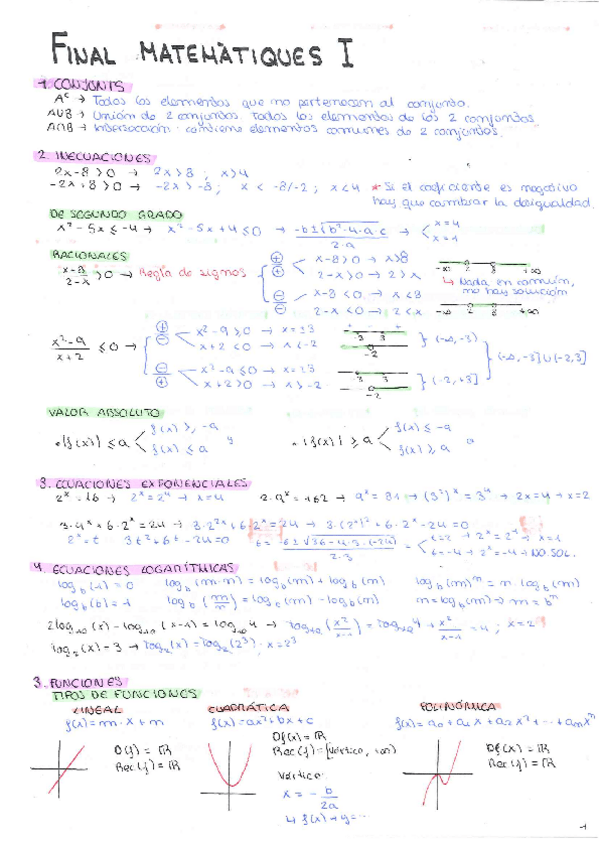 FINAL MATEMÀTIQUES I
1. CONJUNTS
Aᶜ → Todos los elementos que no pertenecen al conjunto.
AUB → Unión de 2 conjuntos. Todos los elementos de los 2 conjuntos
A∩B → Intersección: contiene elementos comunes de 2 conjuntos.
2. INECUACIONES
2x-8>0 → 2x>8 ; x>4
-2x+8>0 → -2x>-8 ; x < -8/-2 ; x<4 * Si el coeficiente es negativo
hay que cambiar la desigualdad.
DE SEGUNDO GRADO
x²-5x≤-4 → x²-5x+4≤0 → -b±√b²-4·a·c / 2·a → x=4
x=1
RACIONALES
x-8/2-x >0 → Regla de signos
⊕ x-8>0 → x>8
⊕ 2-x>0 → 2>x
-∞ 2 8 +∞
↳ Nada en común,
no hay solución
⊖ x-8<0 → x<8
⊖ 2-x<0 → 2<x
-∞ 2 8 +∞
x²-9/x+2 ≤0 →
⊕ x²-9≥0 → x=±3
⊖ x+2<0 → x<-2
} (-∞,-3)
⊖ x²-9≤0 → x=±3
⊕ x+2>0 → x>-2
} (-2,+3]
} (-∞,-3]U(-2,3]
VALOR ABSOLUTO
• |f(x)| ≤ a f(x) ≥ -a y f(x) ≤ a
• |f(x)| ≥ a f(x) ≤ -a o f(x) ≥ a
3. ECUACIONES EXPONENCIALES
2ˣ=16 → 2ˣ=2⁴ → x=4 2·9ˣ=162 → 9ˣ=81 → (3²)ˣ=3⁴ → 2x=4 → x=2
3·4ˣ+6·2ˣ=24 → 3·2²ˣ+6·2ˣ=24 → 3·(2ˣ)²+6·2ˣ-24=0
2ˣ=t 3t²+6t-24=0 t= -6±√36-4·3·(-24) / 2·3 = t=2 → 2ˣ=2¹ → x=1
t=-4 → 2ˣ=-4 → NO SOL.
4. ECUACIONES LOGARÍTMICAS
log_b(1)=0 log_b(m·n)=log_b(m)+log_b(n) log_b(m)ⁿ=n·log_b(m)
log_b(b)=1 log_b(m/n)=log_b(m)-log_b(n) n=log_b(m) → m=bⁿ
2log₁₀(x)-log₁₀(x-1)=log₁₀4 → log₁₀(x²/x-1)=log₁₀4 → x²/x-1=4 ; x=2
log₂(x)=3 → log₂(x)=log₂(2³) ; x=2³
3. FUNCIONES
TIPOS DE FUNCIONES
LINEAL CUADRÁTICA POLINÓMICA
f(x)=m·x+n f(x)=ax²+bx+c f(x)=a₀+a₁x+a₂x²+···+aₙxⁿ
D(f)=ℝ
Rec(f)=ℝ
Df(x)=ℝ
Rec(f)=[Vértice, +∞)
Vértice:
x = -b/2a
↳ f(x)=y=···
Df(x)=ℝ
Rec(f)=ℝ
1